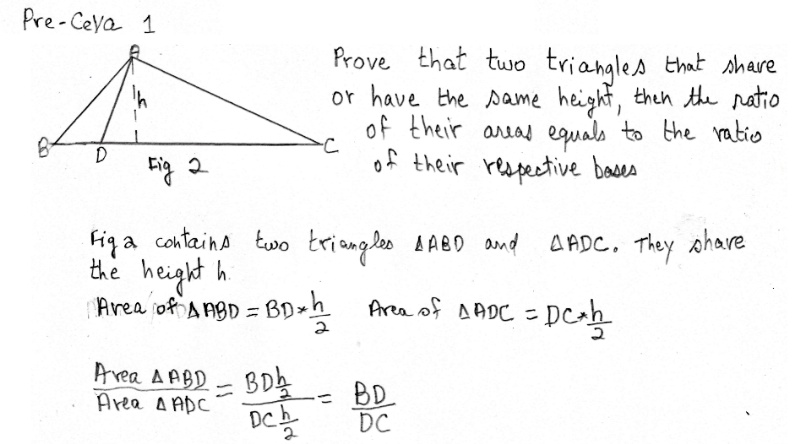 Pre-Ceva 1
A
h
B
D
C
Fig 2
Prove that two triangles that share
or have the same height, then the ratio
of their areas equals to the ratio
of their respective bases
Fig 2 contains two triangles ΔABD and ΔADC. They share
the height h.
Area of ΔABD = BD*h/2 Area of ΔADC = DC*h/2
Area ΔABD / Area ΔADC = BD h/2 / DC h/2 = BD / DC